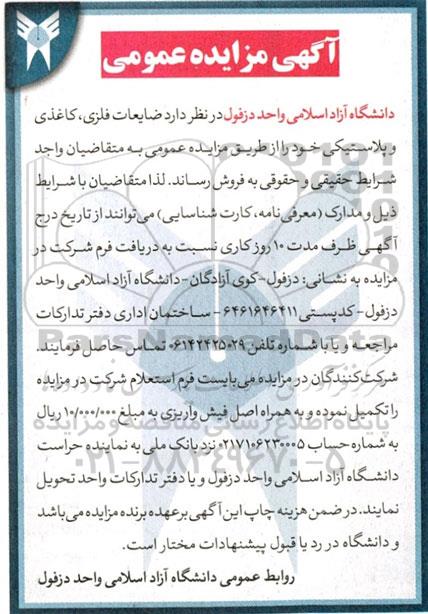 آگهی مزایده عمومی
دانشگاه آزاد اسلامی واحد دزفول در نظر دارد ضایعات فلزی، کاغذی
و پلاستیکی خود را از طریق مزایده عمومی به متقاضیان واجد
شرایط حقیقی و حقوقی به فروش رساند. لذا متقاضیان با شرایط
ذیل و مدارک (معرفی‌نامه، کارت شناسایی) می‌توانند از تاریخ درج
آگهی ظرف مدت ۱۰ روز کاری نسبت به دریافت فرم شرکت در
مزایده به نشانی: دزفول-کوی آزادگان-دانشگاه آزاد اسلامی واحد
دزفول-کدپستی ۶۴۶۱۶۴۶۴۱۱ - ساختمان اداری دفتر تدارکات
مراجعه و یا با شماره تلفن ۰۶۱۴۲۴۲۵۰۲۹ تماس حاصل فرمایند.
شرکت‌کنندگان در مزایده می‌بایست فرم استعلام شرکت در مزایده
را تکمیل نموده و به همراه اصل فیش واریزی به مبلغ ۱۰/۰۰۰/۰۰۰ ریال
به شماره حساب ۰۲۱۷۱۰۶۲۳۰۰۰۵ نزد بانک ملی به نماینده حراست
دانشگاه آزاد اسلامی واحد دزفول و یا دفتر تدارکات واحد تحویل
نمایند. در ضمن هزینه چاپ این آگهی بر عهده برنده مزایده می‌باشد
و دانشگاه در رد یا قبول پیشنهادات مختار است.
روابط عمومی دانشگاه آزاد اسلامی واحد دزفول
ParsNamadData
پایگاه اطلاع رسانی مناقصه و مزایده
۰۲۱-۸۸۳۴۹۶۷۰-۵